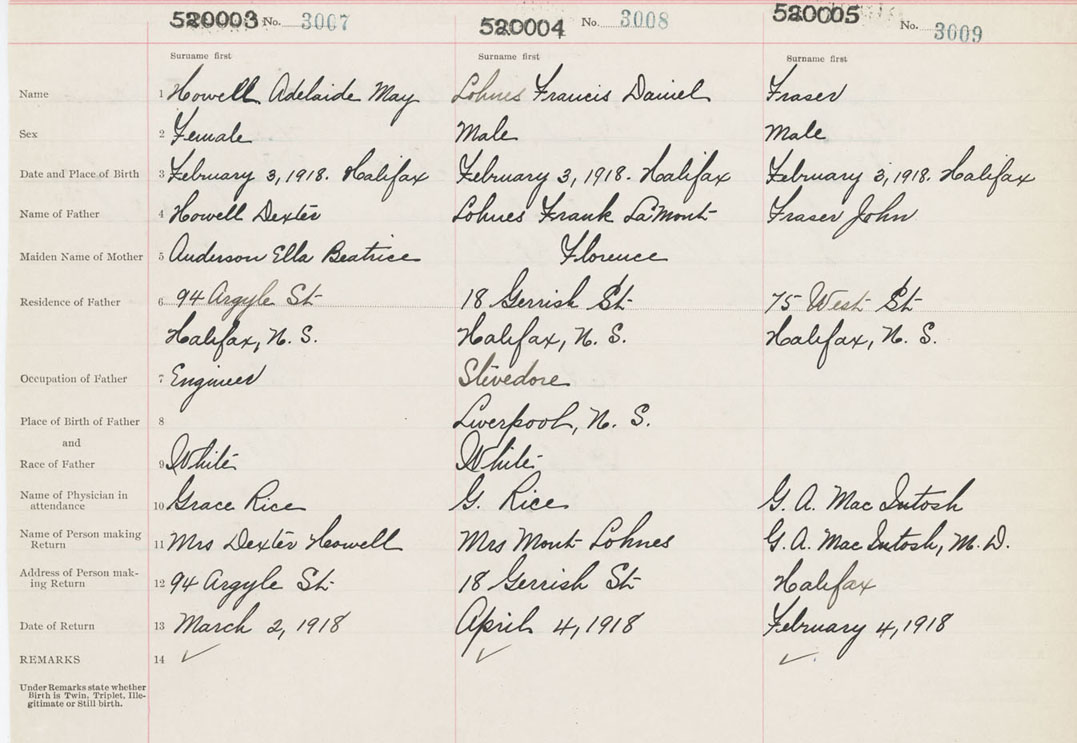 520003 No. 3007 520004 No. 3008 520005 No. 3009
Surname first Surname first Surname first
Name 1 Howell Adelaide May Lohnes Francis Daniel Fraser
Sex 2 Female Male Male
Date and Place of Birth 3 February 3, 1918. Halifax February 3, 1918. Halifax February 3, 1918. Halifax
Name of Father 4 Howell Dexter Lohnes Frank LaMont Fraser John
Maiden Name of Mother 5 Anderson Ella Beatrice Florence
Residence of Father 6 94 Argyle St 18 Gerrish St 75 West St
Halifax, N. S. Halifax, N. S. Halifax, N. S.
Occupation of Father 7 Engineer Stevedore
Place of Birth of Father 8 Liverpool, N. S.
and
Race of Father 9 White White
Name of Physician in
attendance 10 Grace Rice G. Rice G. A. MacIntosh
Name of Person making
Return 11 Mrs Dexter Howell Mrs Mont Lohnes G. A. MacIntosh, M. D.
Address of Person mak-
ing Return 12 94 Argyle St 18 Gerrish St Halifax
Date of Return 13 March 2, 1918 April 4, 1918 February 4, 1918
REMARKS 14 ✓ ✓ ✓
Under Remarks state whether
Birth is Twin, Triplet, Ille-
gitimate or Still birth.